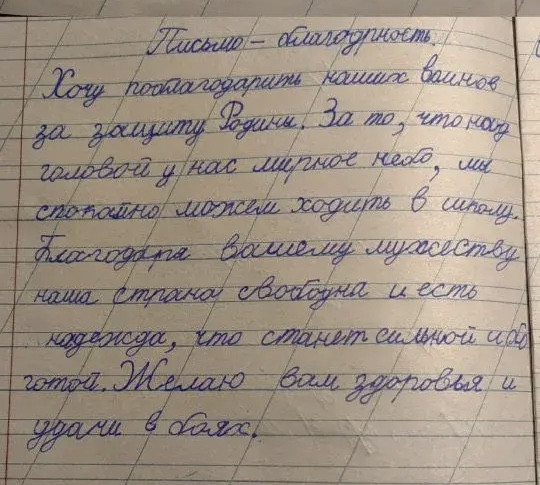 Письмо – благодрность.
Хочу поблагодарить наших воинов
за защиту Родины. За то, что над
головой у нас мирное небо, мы
спокойно можем ходить в школу.
Благодаря вашему мужеству
наша страна свободна и есть
надежда, что станет сильной и бо
готой. Желаю вам здоровья и
удачи в боях.